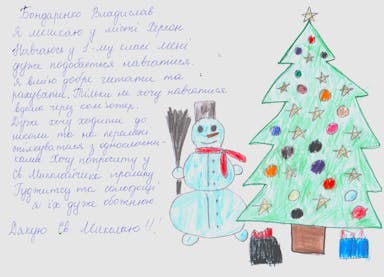 Бондаренко Владислав
Я мешкаю у місті Херсон
Навчаюсь у 1-му класі мені
дуже подобається навчатися.
Я вмію добре читати та
рахувати. Тільки не хочу навчатися
вдома через комп'ютер.
Дуже хочу ходити до
школи та на перерві
спілкуватися з однокласни-
ками. Хочу попросити у
Св Миколайчика іграшку
та солодощі
я їх дуже обожнюю.
Дякую Св Миколаю!!!